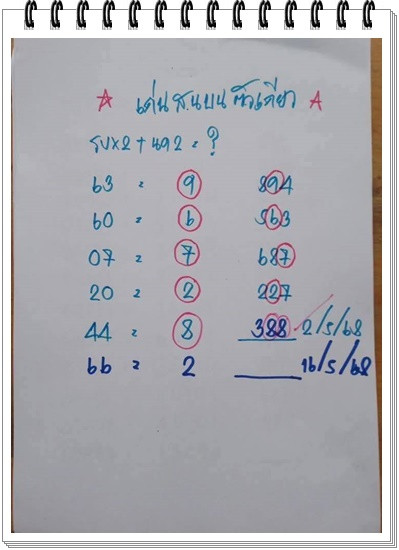 ☆ เด่น ส.น บน ตัวเดียว ☆
รบ×2+นล2=?
63 = 9 894
60 = 6 563
07 = 7 687
20 = 2 227
44 = 8 388 2/5/68
66 = 2 16/5/68